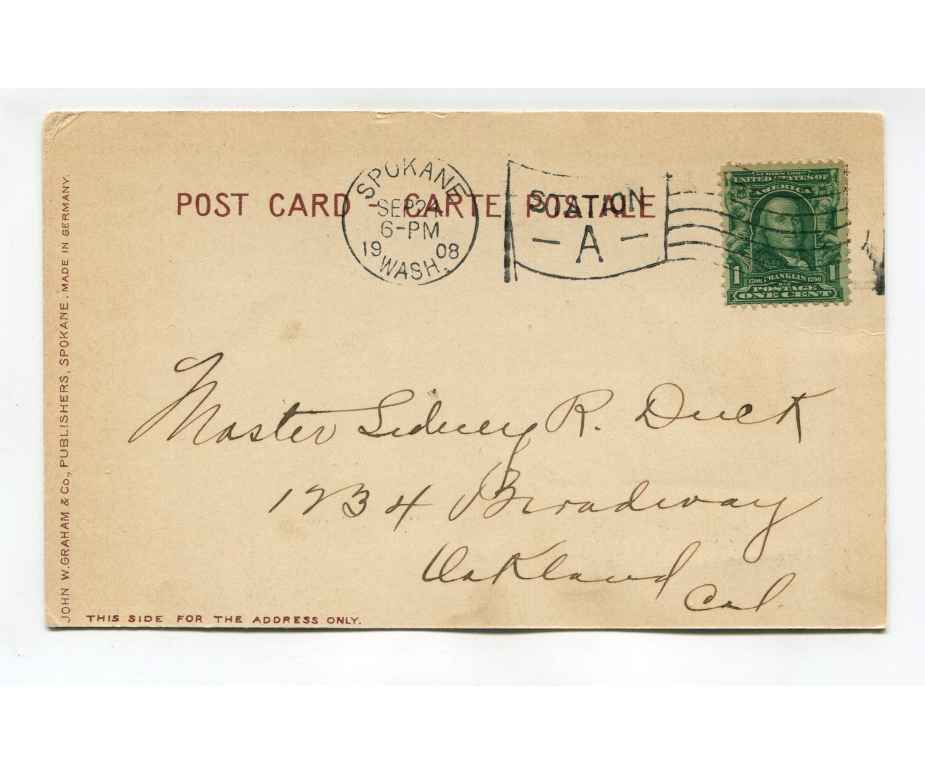 POST CARD - CARTE POSTALE
SPOKANE
SEP 24
6-PM
19 08
WASH.
STATION
- A -
UNITED STATES OF
AMERICA
1 FRANKLIN 1
POSTAGE
ONE CENT
Master Sidney R. Duck
1234 Broadway
Oakland
Cal.
JOHN W. GRAHAM & CO., PUBLISHERS, SPOKANE. MADE IN GERMANY.
THIS SIDE FOR THE ADDRESS ONLY.